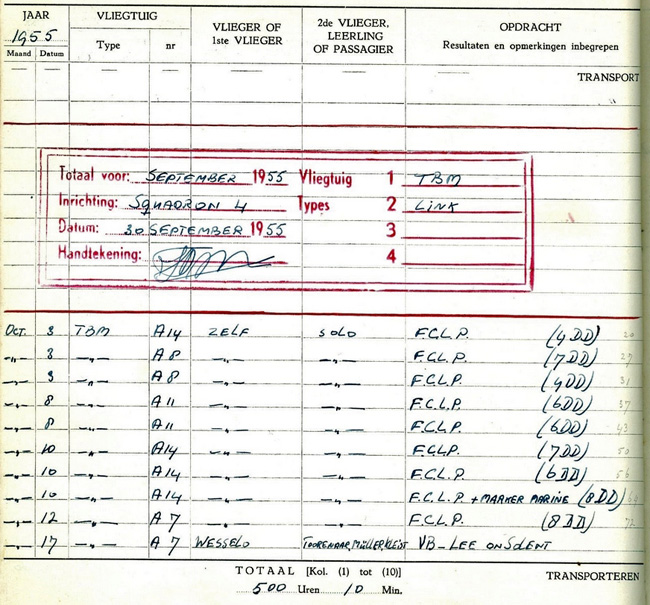 JAAR VLIEGTUIG VLIEGER OF 1ste VLIEGER 2de VLIEGER, LEERLING OF PASSAGIER OPDRACHT
1955 Type nr Resultaten en opmerkingen inbegrepen
Maand Datum
TRANSPORT
Totaal voor: SEPTEMBER 1955 Vliegtuig 1 TBM
Inrichting: SQUADRON 4 Types 2 LINK
Datum: 30 SEPTEMBER 1955 3
Handtekening: 4
OCT. 3 TBM A14 ZELF SOLO F.C.L.P. (4DD) 20
-„- 3 -„- A8 -„- -„- F.C.L.P. (7DD) 27
-„- 3 -„- A8 -„- -„- F.C.L.P. (4DD) 31
-„- 8 -„- A11 -„- -„- F.C.L.P. (6DD) 37
-„- 8 -„- A11 -„- -„- F.C.L.P. (6DD) 43
-„- 10 -„- A14 -„- -„- F.C.L.P. (7DD) 50
-„- 10 -„- A14 -„- -„- F.C.L.P. (6DD) 56
-„- 10 -„- A14 -„- -„- F.C.L.P. + MARKER MARINE (8DD) 64
-„- 12 -„- A7 -„- -„- F.C.L.P. (8DD) 72
-„- 17 -„- A7 WESSELO TOORENAAR, MÜLLER, VB - LEE ON SOLENT
TOTAAL [Kol. (1) tot (10)]
500 Uren 10 Min.
TRANSPORTEREN